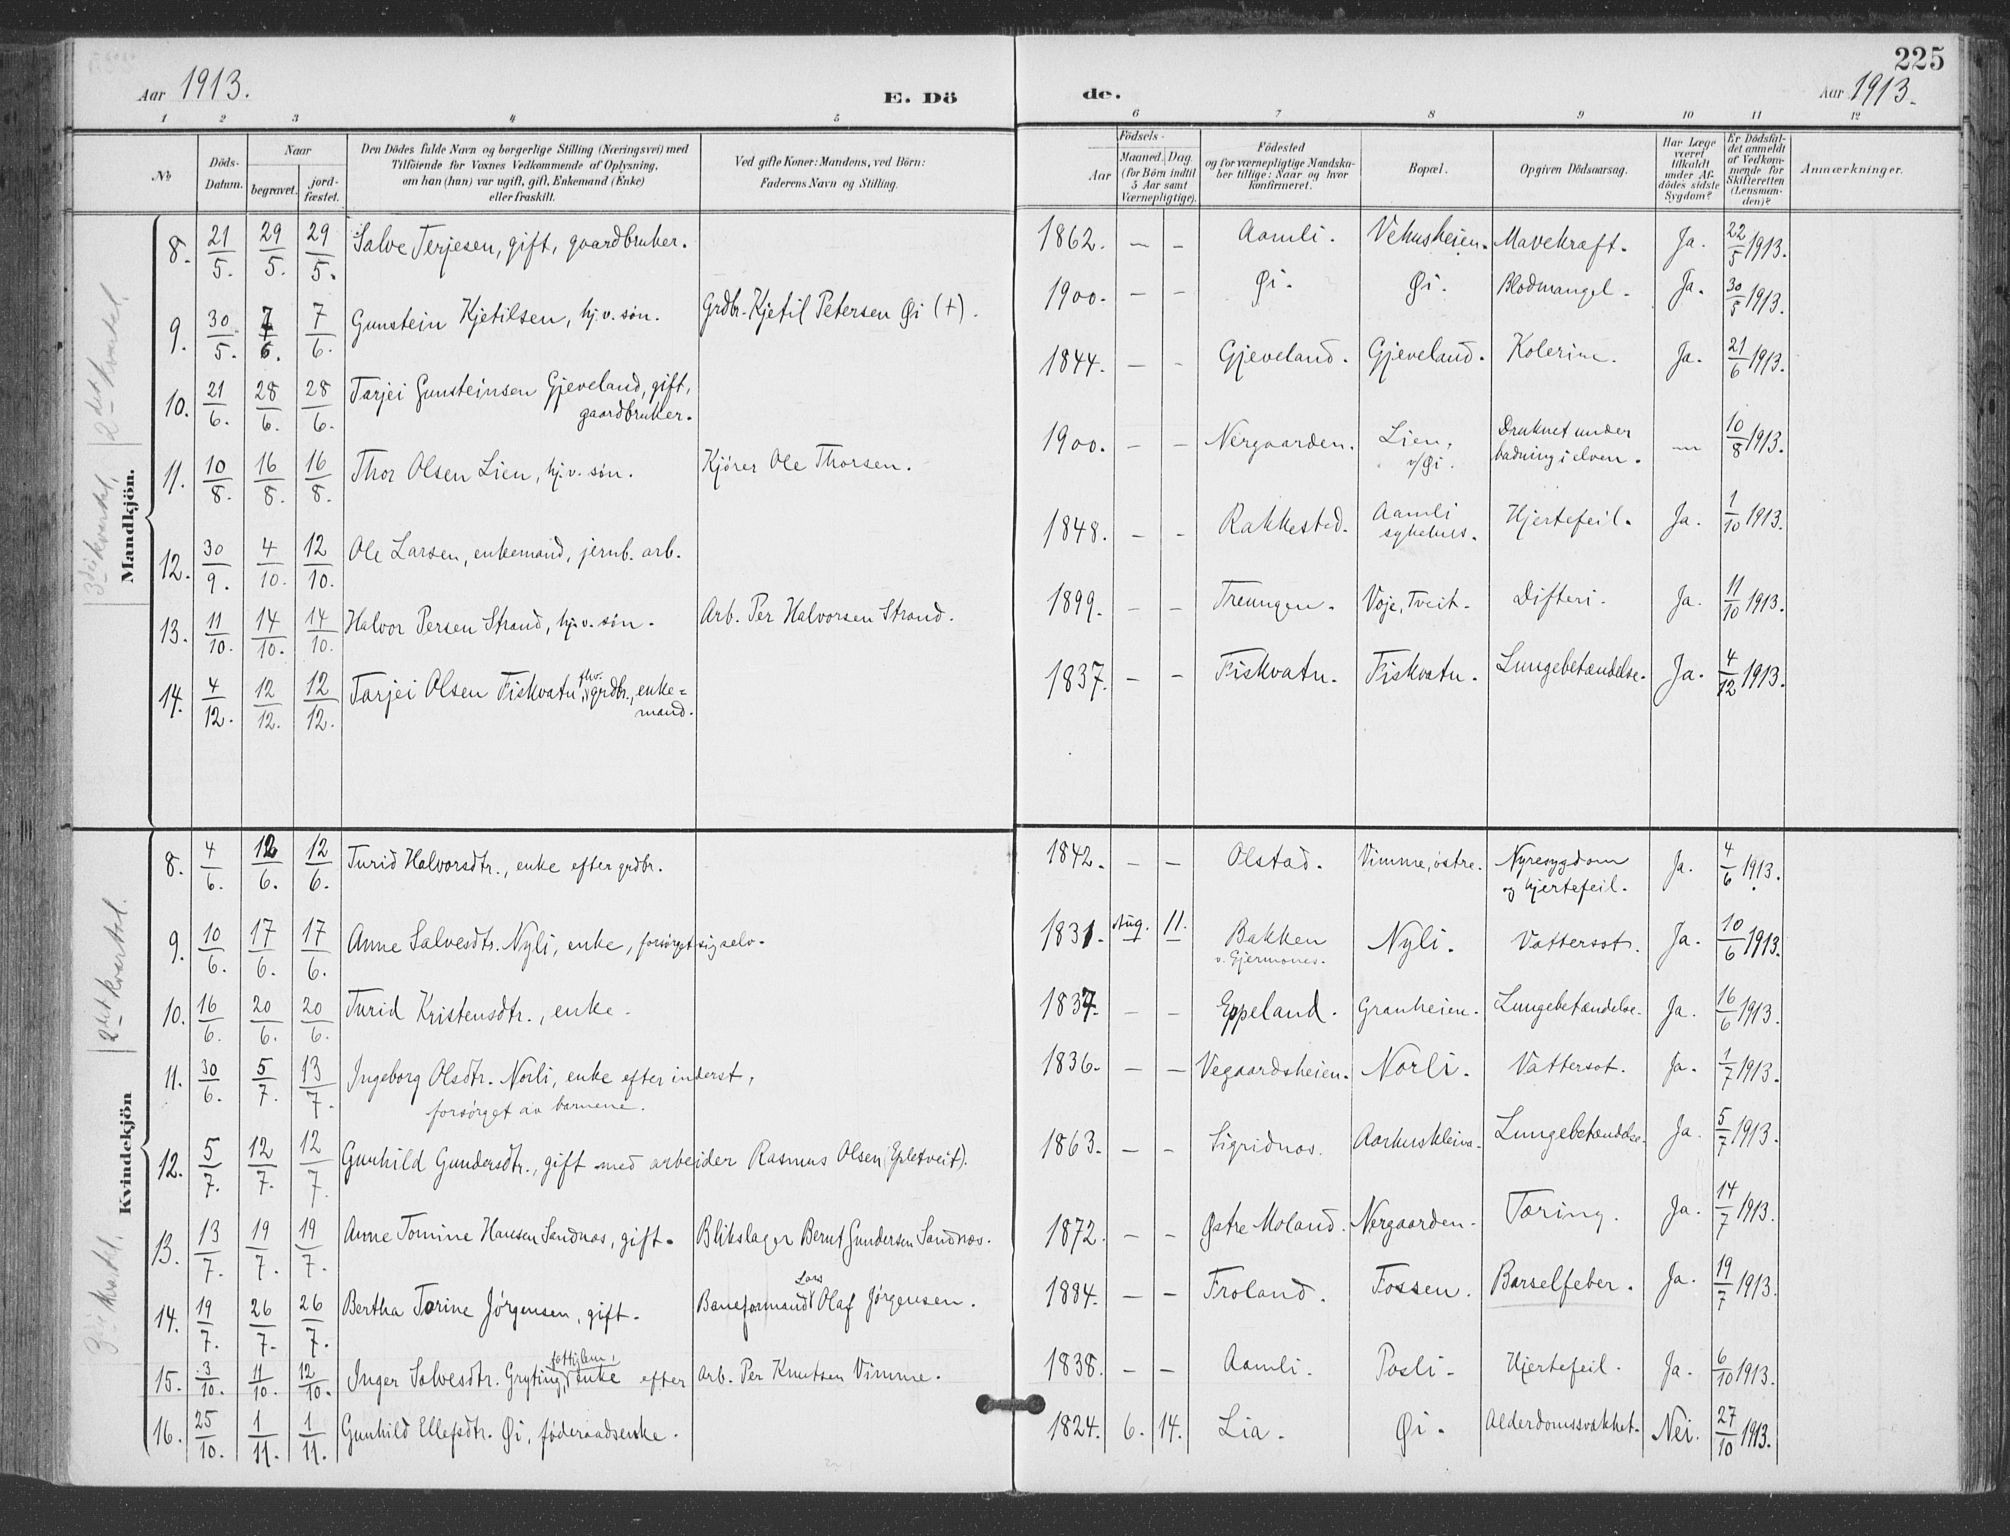 Aar 1913.
E. Dö
de.
225
Aar 1913.
1 2 3 4 5 6 7 8 9 10 11 12
No
Döds-
Datum.
Naar
begravet.
jord-
fæstet.
Den Dödes fulde Navn og borgerlige Stilling (Næringsvei) med
Tilföiende for Voxnes Vedkommende af Oplysning,
om han (hun) var ugift, gift, Enkemand (Enke)
eller fraskilt.
Ved gifte Koner: Mandens, ved Börn:
Faderens Navn og Stilling.
Födsels-
Aar
Maaned. Dag.
(for Börn indtil
5 Aar samt
Værnepligtige).
Födested
og for værnepligtige Mandska-
ber tillige: Naar og hvor
konfirmeret.
Bopæl.
Opgiven Dödsaarsag.
Har Læge
været
tilkaldt
under Af-
dödes sidste
Sygdom?
Er Dödsfal-
det anmeldt
af Vedkom-
mende for
Skifteretten
(Lensman-
den)?
Anmærkninger.
2det kvartal.
3die kvartal.
Mandkjön.
8. 21/5. 29/5. 29/5. Salve Terjesen, gift, gaardbruker. 1862. — - Aamli. Vehusheien. Mavekræft. Ja. 22/5 1913.
9. 30/5. 7/6. 7/6. Gunstein Kjetilsen, hj. v. søn. Grdbr. Kjetil Petersen Øi (+). 1900. — - Øi. Øi. Blodmangel. Ja. 30/5 1913.
10. 21/6. 28/6. 28/6. Tarjei Gunsteinsen Gjeveland, gift,
gaardbruker. 1844. — - Gjeveland. Gjeveland. Kolerine. Ja. 21/6 1913.
11. 10/8. 16/8. 16/8. Thor Olsen Lien, hj. v. søn. Kjører Ole Thorsen. 1900. — - Nergaarden. Lien,
v/Øi. Druknet under
badning i elven. — 10/8 1913.
12. 30/9. 4/10. 12/10. Ole Larsen, enkemand, jernb. arb. 1848. — - Rakkestad. Aamli
sykehus. Hjertefeil. Ja. 1/10 1913.
13. 11/10. 14/10. 14/10. Halvor Persen Strand, hj. v. søn. Arb. Per Halvorsen Strand. 1899. — - Treungen. Voje, Tveit. Difteri. Ja. 11/10 1913.
14. 4/12. 12/12. 12/12. Tarjei Olsen Fiskvatn, fhv. grdbr., enke=
mand. 1837. — - Fiskvatn. Fiskvatn. Lungebetændelse. Ja. 4/12 1913.
2det kvartal.
Kvindekjön
8. 4/6. 12/6. 12/6. Turid Halvorsdtr., enke efter grdbr. 1842. — — Olstad. Vimme, østre. Nyresygdom
og hjertefeil. Ja. 4/6 1913.
9. 10/6. 17/6. 17/6. Anne Salvesdtr. Nyli, enke, forsørget sig selv. 1831. Aug. 11. Bakken
v. Gjermones. Nyli. Vattersot. Ja. 10/6 1913.
10. 16/6. 20/6. 20/6. Turid Kristensdtr., enke. 1837. — — Eppeland. Granheien. Lungebetændelse. Ja. 16/6 1913.
11. 30/6. 5/7. 13/7. Ingeborg Olsdtr. Norli, enke efter inderst,
forsörget av barnene. 1836. — — Vegaardsheien. Norli. Vattersot. Ja. 1/7 1913.
12. 5/7. 12/7. 12/7. Gunhild Gundersdtr., gift med arbeider Rasmus Olsen (Epletveit). 1863. — — Sigridnes. Aarhuskleiva. Lungebetændelse. Ja. 5/7 1913.
13. 13/7. 19/7. 19/7. Anne Tomine Hansen Sandnes, gift. Blikslager Bernt Gundersen Sandnes. 1872. — — Østre Moland. Nergaarden. Tæring. Ja. 14/7 1913.
14. 19/7. 26/7. 26/7. Bertha Torine Jörgensen, gift. Baneformand Lars Olaf Jørgensen. 1884. — — Froland. Fossen. Barselfeber. Ja. 19/7 1913.
15. 3/10. 11/10. 12/10. Inger Salvesdtr. Gryting, fattiglem, enke efter Arb. Per Knutsen Vimme. 1838. — — Aamli. Posli. Hjertefeil. Ja. 6/10 1913.
16. 25/10. 1/11. 1/11. Gunhild Ellefsdtr. Øi, føderaadsenke. 1824. 6. 14. Lia. Øi. Alderdomssvakhet. Nei. 27/10 1913.